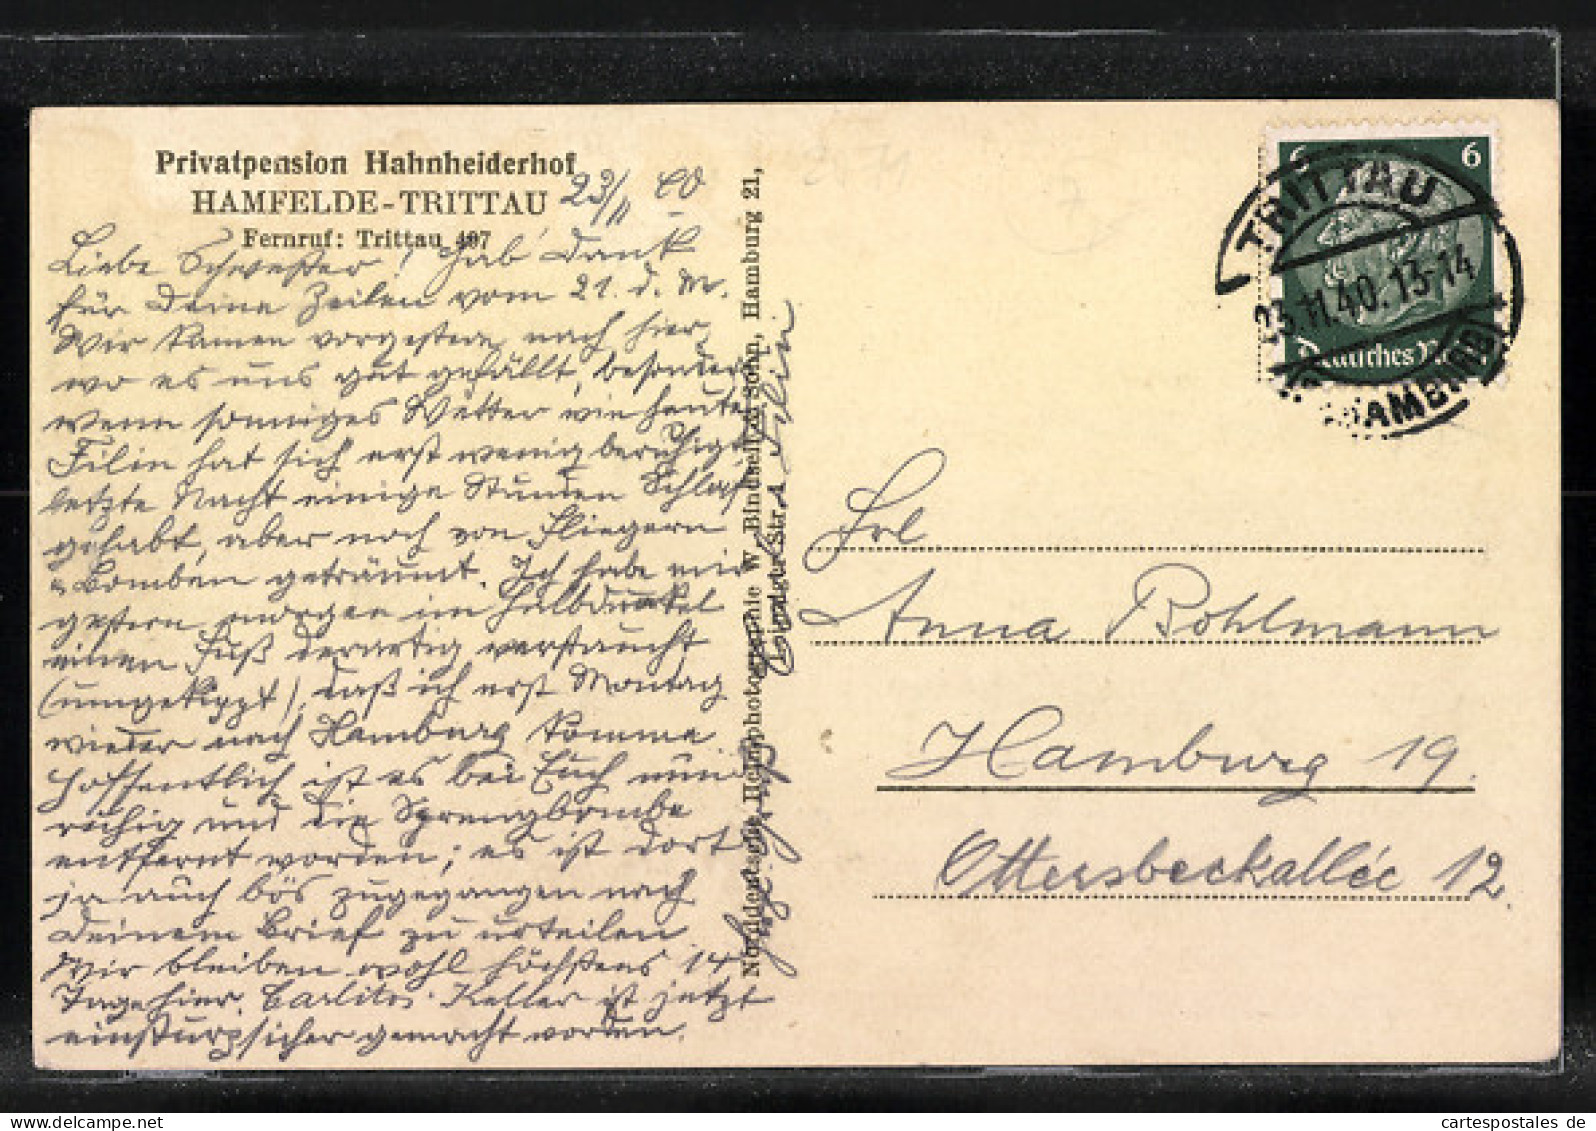 Privatpension Hahnheiderhof
HAMFELDE-TRITTAU
Fernruf: Trittau 497
23/11 40
Liebe Schwester! Hab Dank
für Deine Zeilen vom 21. d. M.
Wir kamen vorgestern nach hier,
wo es uns gut gefällt, besonders
wenn sonniges Wetter wie heute.
Filin hat sich erst wenig beruhigt
letzte Nacht einige Stunden Schlaf
gehabt, aber noch von Fliegern
u. Bomben geträumt. Ich habe mir
gestern morgen im Halbdunkel
einen Fuß derartig verstaucht
(umgekippt), daß ich erst Montag
wieder nach Hamburg komme.
Hoffentlich ist es bei Euch nun
ruhig und die Sprengbombe
entfernt worden; es ist dort
ja auch bös zugegangen nach
Deinem Brief zu urteilen.
Wir bleiben wohl höchstens 14
Tage hier. Carlitos Keller ist jetzt
einsturzsicher gemacht worden.
Filin
Norddeutsche Heimphotographie W. Bindseil & Sohn, Hamburg 21,
Str. 1
6 6
Deutsches Reich
TRITTAU
23.11.40.13-14
(BZ. HAMBURG)
Frl
Anna Bohlmann
Hamburg 19.
Ottersbeckallée 12.
cartespostales de